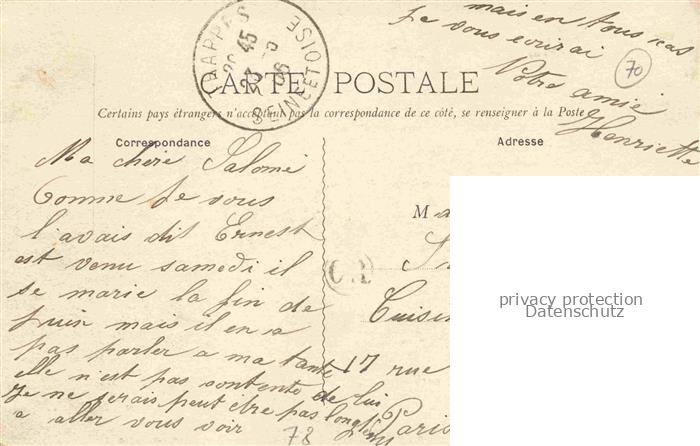 mais en tous cas
je vous ecrirai
70
Votre amie
Henriette
TRAPPES
SEINE ET OISE
CARTE POSTALE
Certains pays étrangers n'acceptant pas la correspondance de ce côté, se renseigner à la Poste
Correspondance
Adresse
Ma chere Salomé
Comme je vous
l'avais dit Ernest
est venu samedi il
se marie la fin de
juin mais il en a
pas parler a ma tante
elle n'est pas contente de lui
Je ne serais peut être pas longtemps
a aller vous voir
78
M
Cuisin
17 rue
Paris
privacy protection
Datenschutz